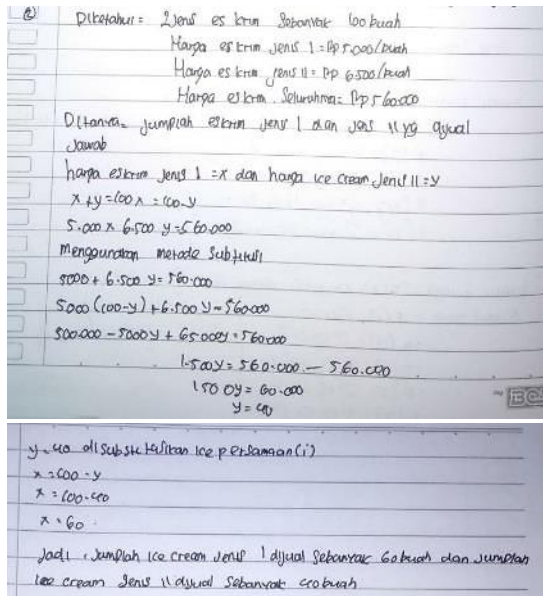 ② Diketahui = 2 Jenis es krim sebanyak 100 buah
Harga es krim jenis I = Rp 5.000/buah
Harga es krim jenis II = Rp 6500/buah
Harga es krim seluruhnya = Rp 560.000
Ditanya = jumlah eskrim jenis I dan jenis II yg dijual
Jawab
harga eskrim jenis I = x dan harga ice cream jenis II = y
x + y = 100 x = 100-y
5.000 x 6.500 y = 560.000
menggunakan metode subtitusi
5000 + 6.500 y = 560.000
5000 (100-y) + 6.500 y = 560000
500.000 - 5000y + 65000y = 560000
1.500y = 560.000 - 560.000
1500y = 60.000
y = 40
y = 40 disubstitusikan ke persamaan (i)
x = 100 - y
x = 100-40
x = 60
Jadi, jumlah ice cream jenis I dijual sebanyak 60 buah dan jumlah
ice cream jenis II dijual sebanyak 40 buah